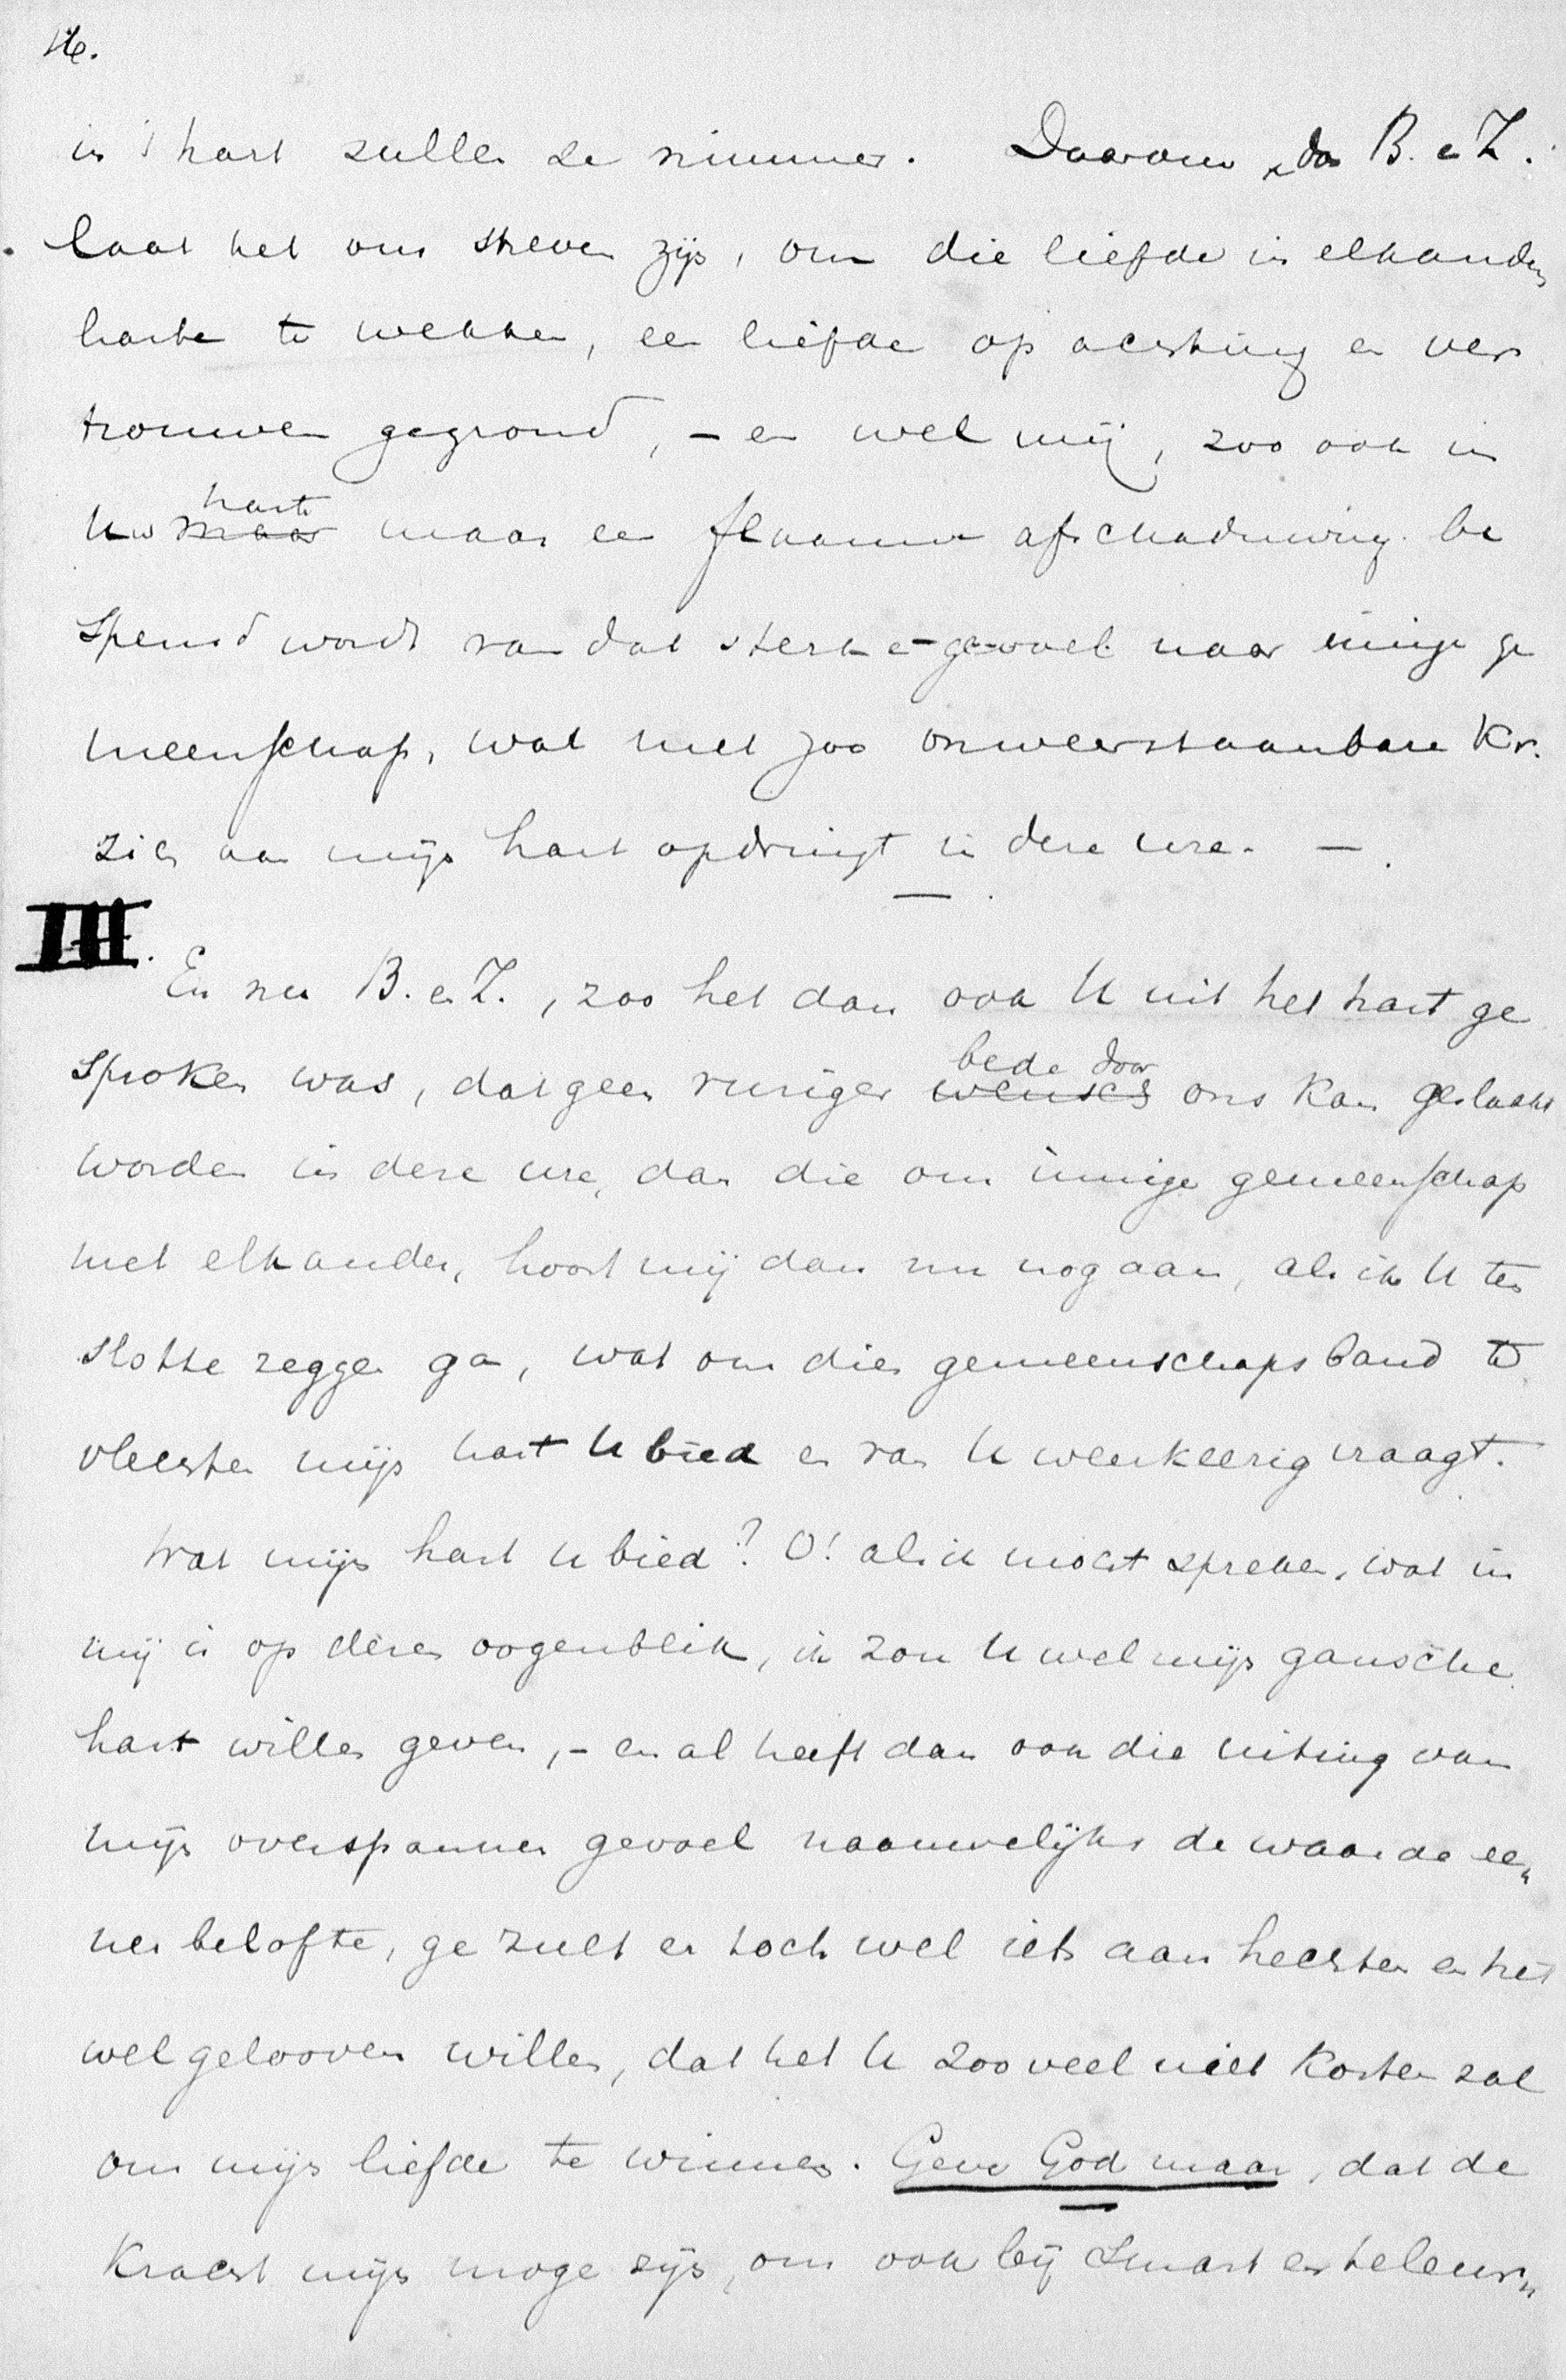 16.
in 't hart zullen ze nimmer. Daarom dan B. en Z.
laat het ons streven zijn, om die liefde in elkanders
harte te wekken, een liefde op achting en ver
trouwen gegrond, - en wel mij, zoo ook in
Uw harte maar een flaauwe afschaduwing be
speurd wordt van dat sterke gevoel naar innige ge
meenschap, wat met zoo onweerstaanbare Kr.
zich aan mijn hart opdringt in deze ure. -.
III.
En nu B. en Z., zoo het dan ook U uit het hart ge
sproken was, dat geen vuriger wensch bede door ons kan geslaakt
worden in deze ure, dan die om innige gemeenschap
met elkander, hoort mij dan nu nog aan, als ik U ten
slotte zeggen ga, wat om dien gemeenschapsband te
vlechten mijn hart U bied en van U weerkeerig vraagt.
Wat mijn hart U bied? O! als ik mocht spreken, wat in
mij is op dezen oogenblik, ik zou U wel mijn gansche
hart willen geven, - en al heeft dan ook die uiting van
mijn overspannen gevoel naauwelijks de waarde ee„
ner belofte, ge zult er toch wel iets aan hechten en het
wel gelooven willen, dat het U zooveel niet kosten zal
om mijn liefde te winnen. Geve God maar, dat de
Kracht mijn moge zijn, om ook bij smart en teleur„